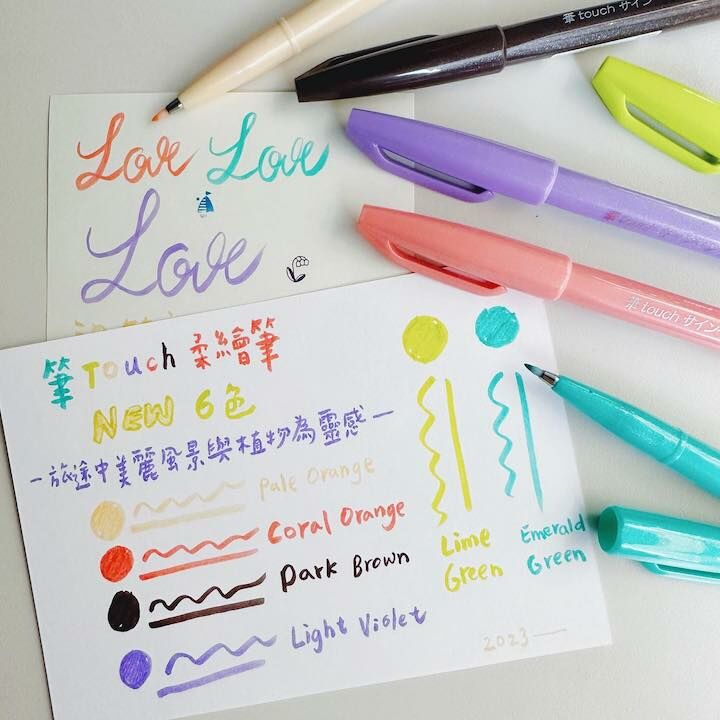 筆touch サイン
Love Love
Love
筆touch サイン
筆Touch 柔繪筆
NEW 6色
—旅途中美麗風景與植物為靈感—
Pale Orange
Coral Orange
Dark Brown
Light Violet
Lime
Green
Emerald
Green
2023